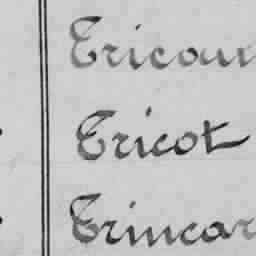 Tricou
Tricot
Trincar